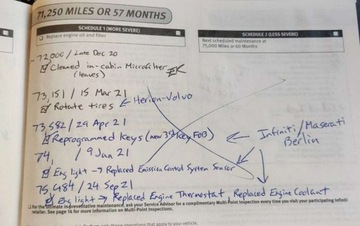 71,250 MILES OR 57 MONTHS
SCHEDULE 1 (MORE SEVERE)
Replace engine oil and filter
SCHEDULE 2 (LESS SEVERE)
Next scheduled maintenance at
75,000 Miles or 60 Months
- 72,000 / Late Dec 20
Cleaned in-cabin Microfilter
(leaves)
73,151 / 15 Mar 21
Rotate tires ← Herion-Volvo
73,582 / 29 Apr 21
Reprogrammed Keys (new 3rd key FOB) ← Infiniti/Maserati
Berlin
74, / 9 Jun 21
Eng light → Replaced Emission Control System Sensor
75,484 / 24 Sep 21
Eng light → Replaced Engine Thermostat, Replaced Engine Coolant
For the ultimate in preventative maintenance, ask your Service Advisor for a complimentary Multi-Point Inspection every time you visit your participating Infiniti
Retailer. See page 16 for more information on Multi-Point Inspections.